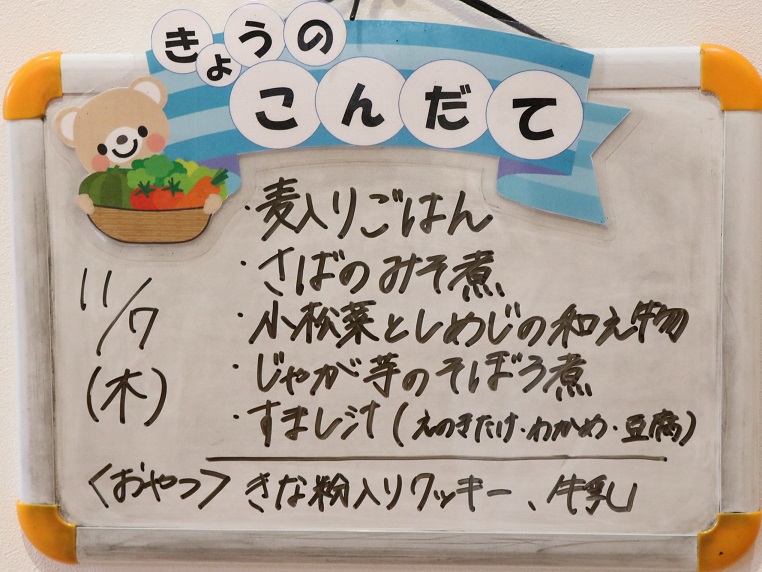 きょうの
こんだて
11/7
(木)
・麦入りごはん
・さばのみそ煮
・小松菜としめじの和え物
・じゃが芋のそぼろ煮
・すまし汁(えのきたけ・わかめ・豆腐)
<おやつ> きな粉入りクッキー、牛乳